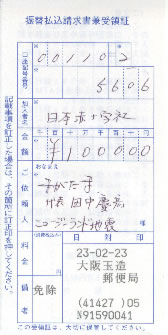 振替払込請求書兼受領証
口座記号番号
00110 2
5606
加入者名
日本赤十字社
金額
千百十万千百十円
¥100000
おなまえ
代表 田中
ニュージーランド地震
料金
(消費税込み)
日附印
備考
免除
23-02-23
大阪玉造
郵便局
(41427)05
N91590041
記載事項を訂正した場合は、その箇所に訂正印を押してください。
この受領証は、大切に保管してください。